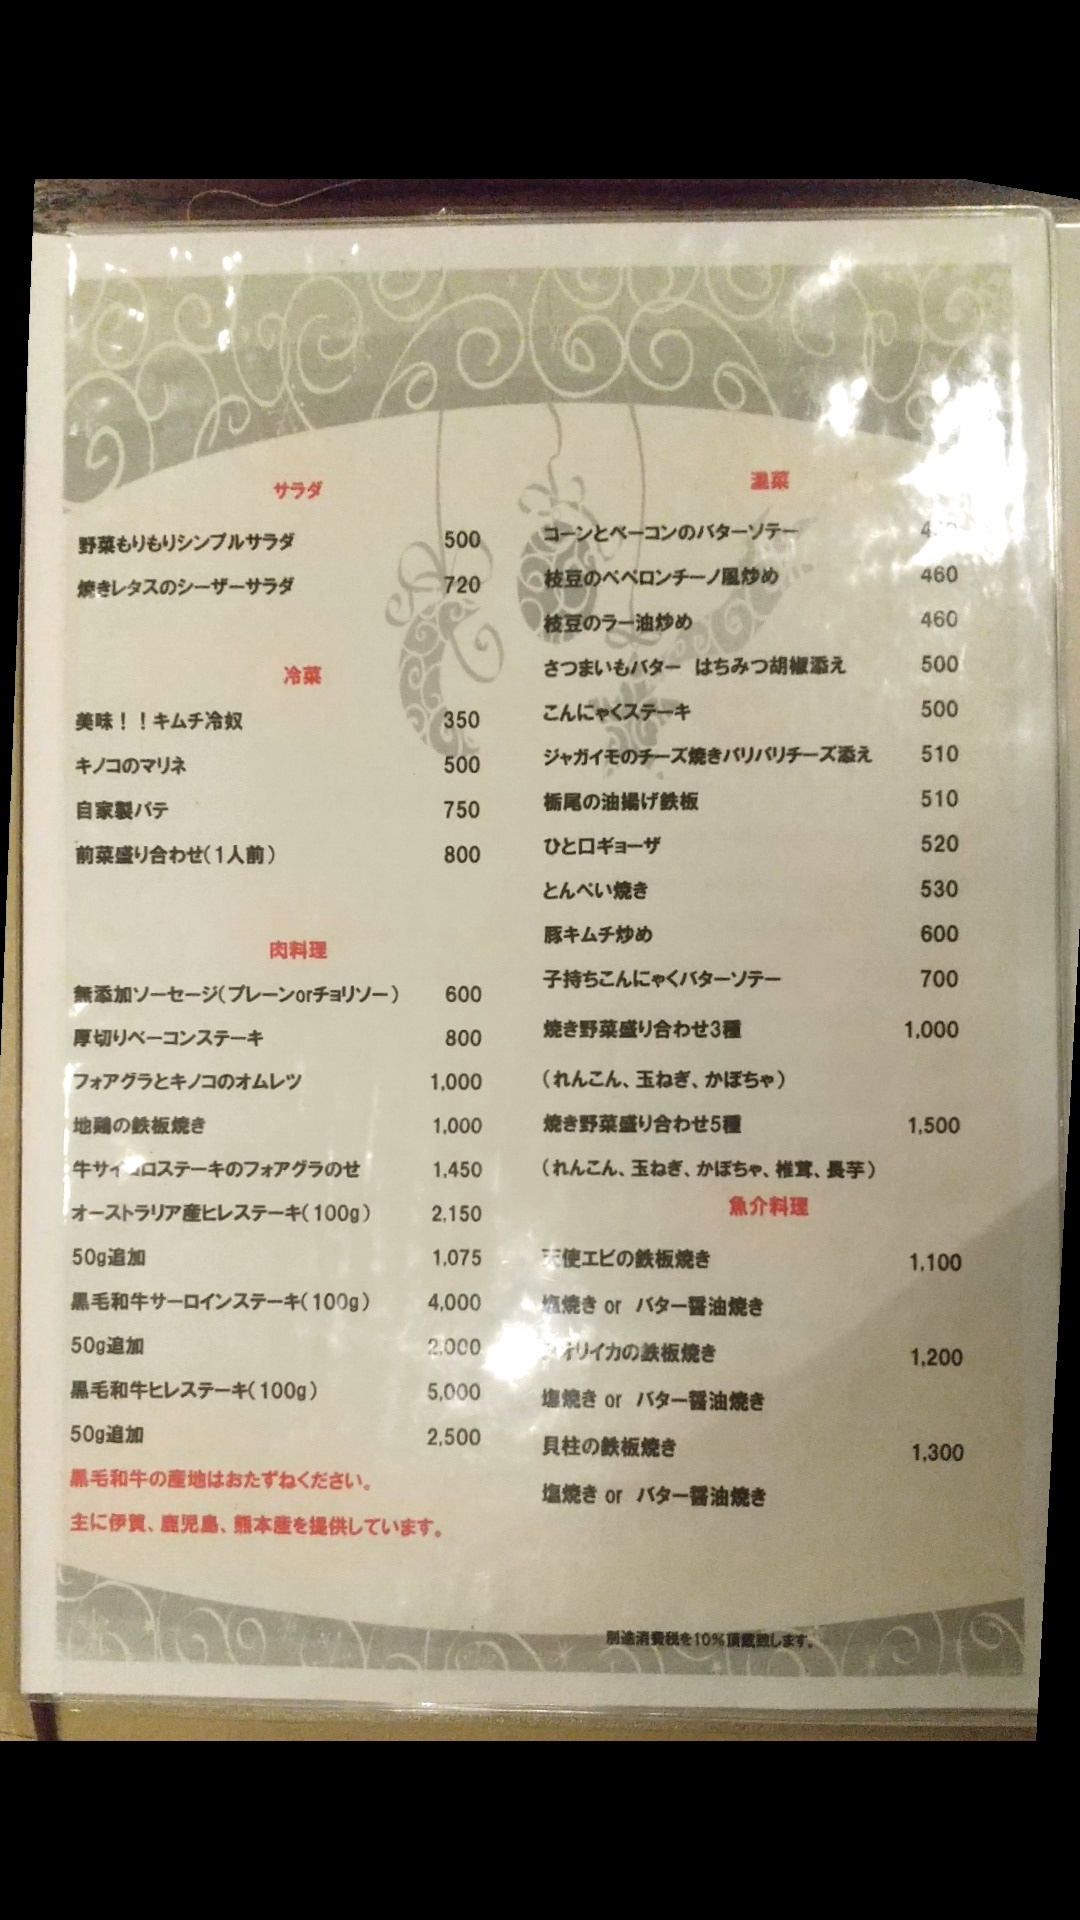 サラダ
野菜もりもりシンプルサラダ 500
焼きレタスのシーザーサラダ 720
冷菜
美味！！キムチ冷奴 350
キノコのマリネ 500
自家製パテ 750
前菜盛り合わせ（1人前） 800
肉料理
無添加ソーセージ（プレーンorチョリソー） 600
厚切りベーコンステーキ 800
フォアグラとキノコのオムレツ 1,000
地鶏の鉄板焼き 1,000
牛サイコロステーキのフォアグラのせ 1,450
オーストラリア産ヒレステーキ（100g） 2,150
50g追加 1,075
黒毛和牛サーロインステーキ（100g） 4,000
50g追加 2,000
黒毛和牛ヒレステーキ（100g） 5,000
50g追加 2,500
黒毛和牛の産地はおたずねください。
主に伊賀、鹿児島、熊本産を提供しています。
温菜
コーンとベーコンのバターソテー
枝豆のペペロンチーノ風炒め 460
枝豆のラー油炒め 460
さつまいもバター はちみつ胡椒添え 500
こんにゃくステーキ 500
ジャガイモのチーズ焼きパリパリチーズ添え 510
栃尾の油揚げ鉄板 510
ひと口ギョーザ 520
とんぺい焼き 530
豚キムチ炒め 600
子持ちこんにゃくバターソテー 700
焼き野菜盛り合わせ3種 1,000
（れんこん、玉ねぎ、かぼちゃ）
焼き野菜盛り合わせ5種 1,500
（れんこん、玉ねぎ、かぼちゃ、椎茸、長芋）
魚介料理
天使エビの鉄板焼き 1,100
塩焼き or バター醤油焼き
アオリイカの鉄板焼き 1,200
塩焼き or バター醤油焼き
貝柱の鉄板焼き 1,300
塩焼き or バター醤油焼き
別途消費税を10%頂戴致します。